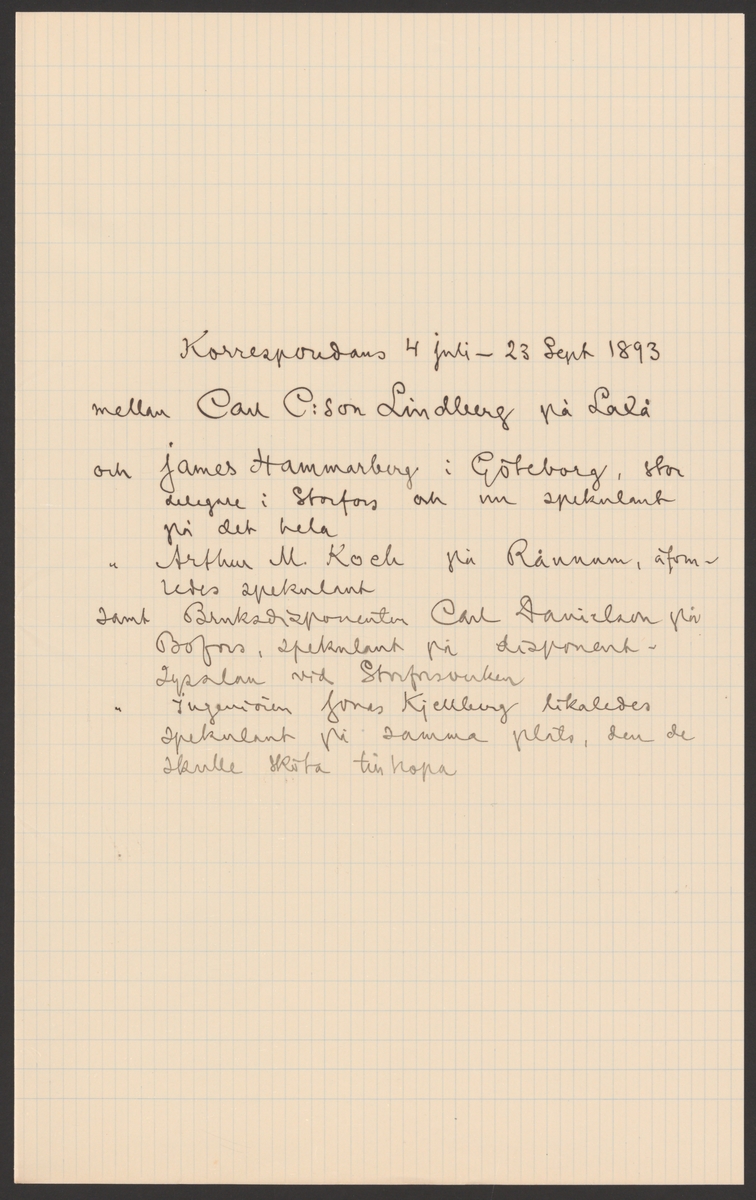 Korrespondans 4 juli – 23 Sept 1893
mellan Carl C:son Lindberg på Laxå
och James Hammarberg i Göteborg, stor
delegare i Storfors och nu spekulant
på det hela
„ Arthur M. Koch på Rånnum, äfven-
ledes spekulant
samt Bruksdisponenten Carl Danielson på
Bofors, spekulant på disponent-
sysslan vid Storforsverken
„ Ingeniören Jonas Kjellberg likaledes
spekulant på samma plats, den de
skulle sköta tillhopa